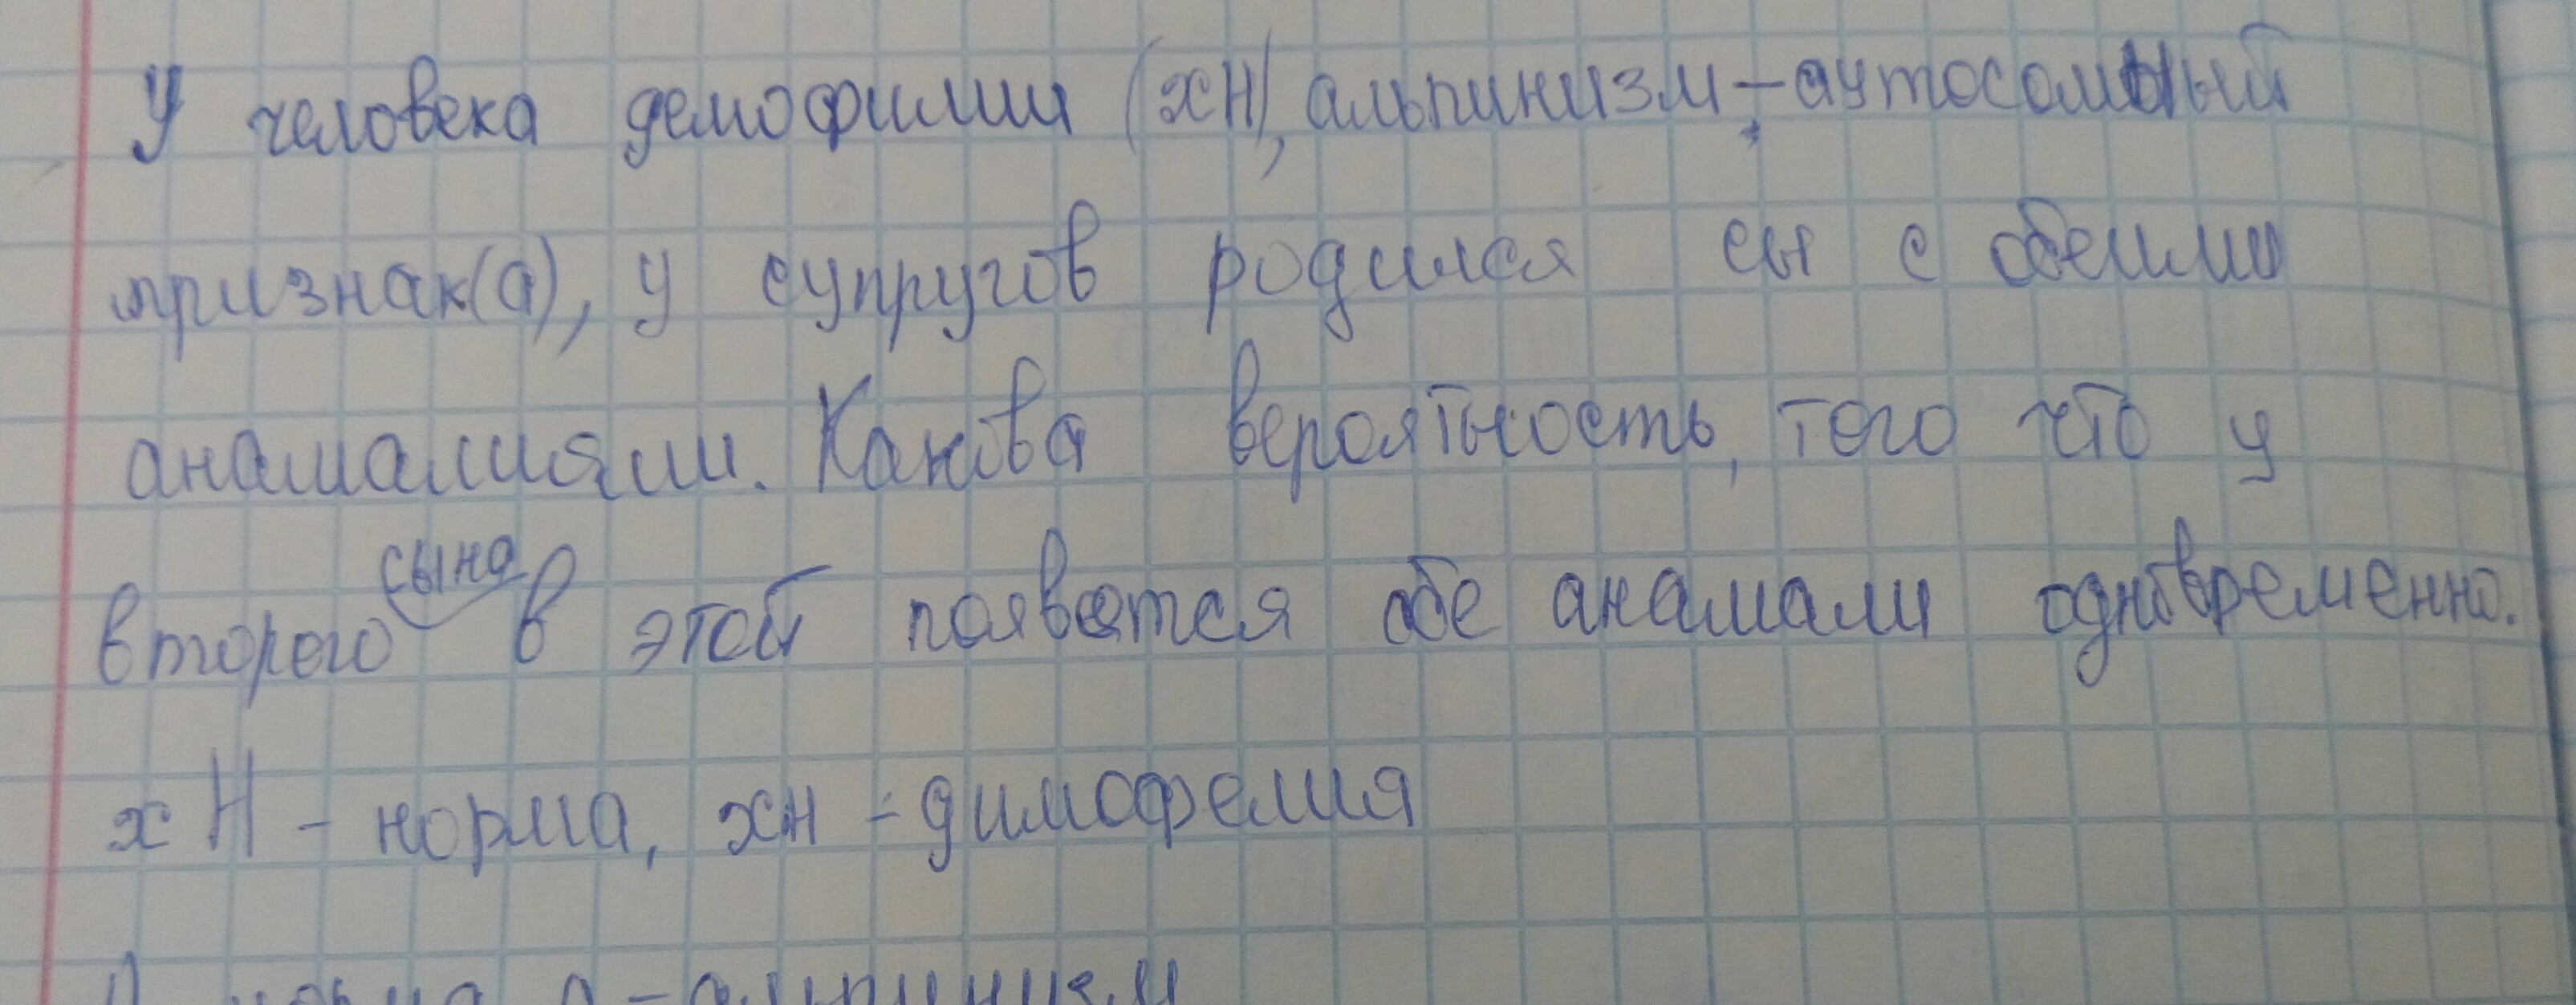 У человека демофилии (хн), альпинизм - аутосомный
признак(а), у супругов родился сы с обеими
анамалиями. Какова вероятность, того что у
второго сына в этой появятся обе анамали одновременно.
х Н - норма, хн - димофелия
А норма а - альпинизм